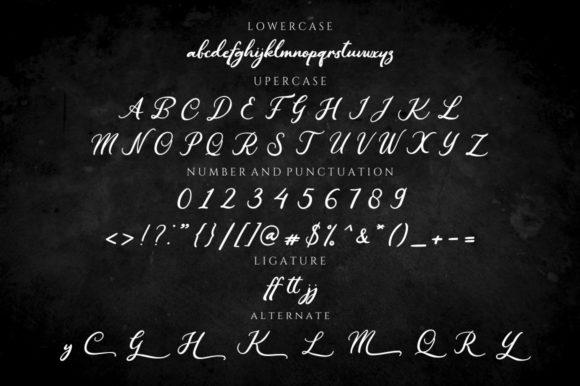 LOWERCASE
abcdefghijklmnopqrstuvwxyz
UPERCASE
A B C D E F G H I J K L
M N O P Q R S T U V W X Y Z
NUMBER AND PUNCTUATION
0 1 2 3 4 5 6 7 8 9
<>!?:"{}/[]@#$%^&*()_+-=
LIGATURE
ff tt jj
ALTERNATE
y C G H K L M Q R Y